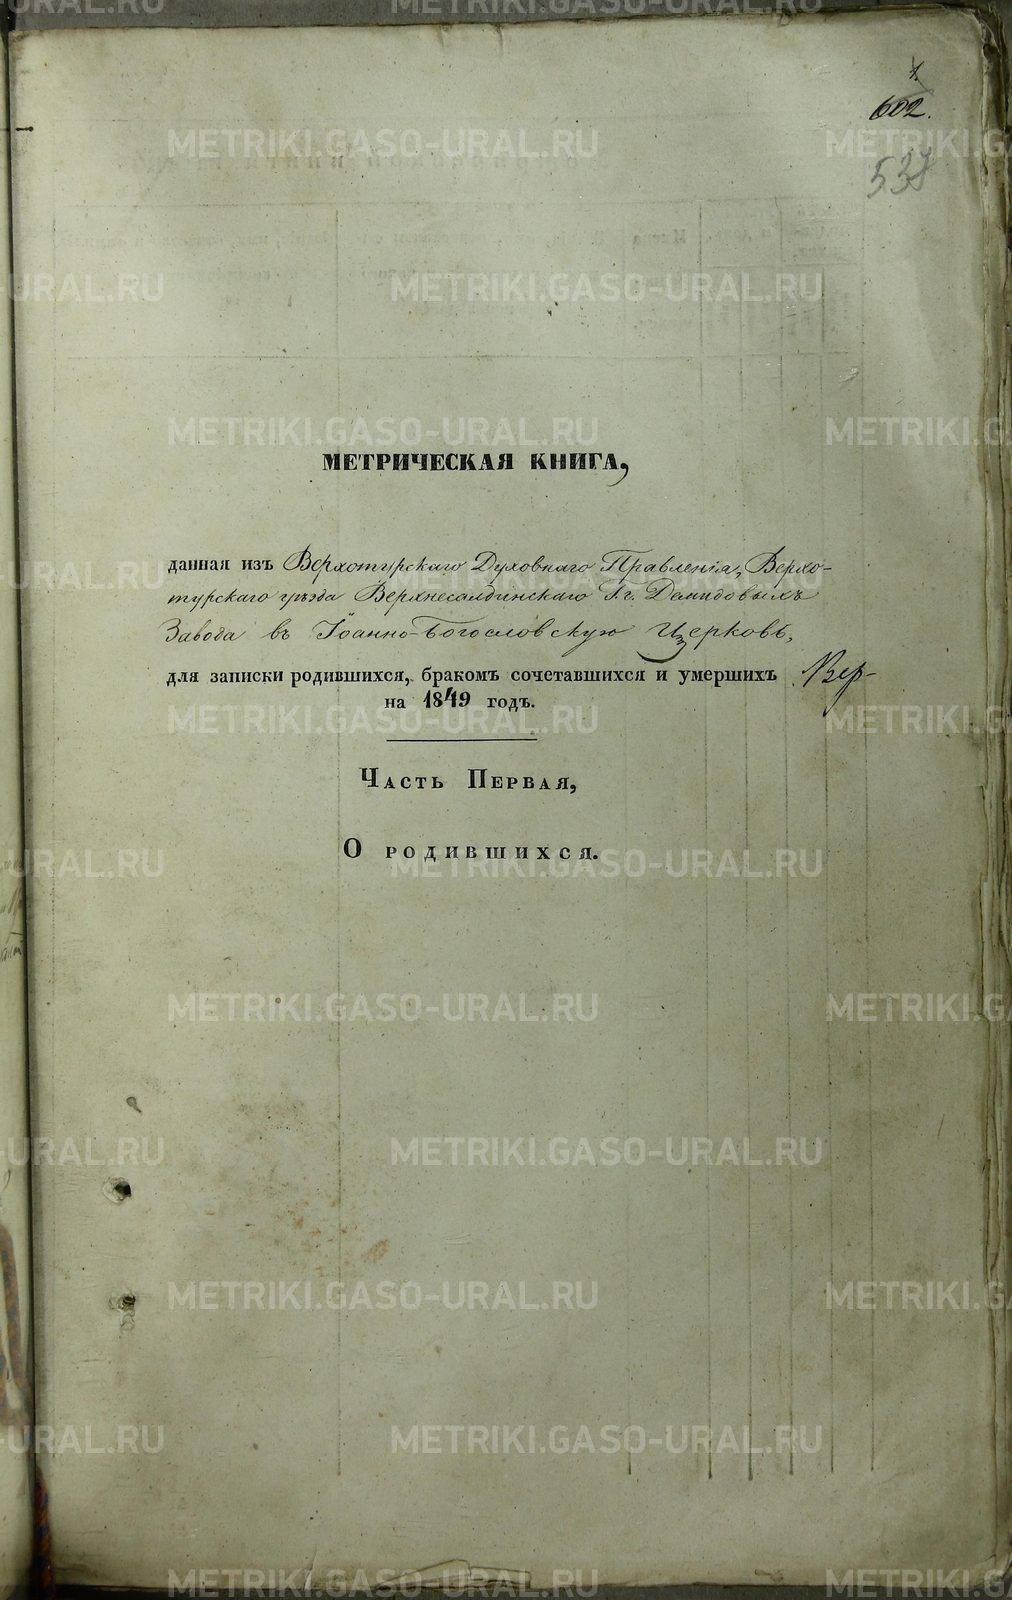 1.
602.
538
МЕТРИЧЕСКАЯ КНИГА,
данная изъ Верхотурскаго Духовнаго Правленія, Верхо-
турскаго уѣзда Верхнесалдинскаго Гг. Демидовыхъ
Завода въ Іоанно-Богословскую Церковь,
для записки родившихся, бракомъ сочетавшихся и умершихъ Вер-
на 1849 годъ.
Часть Первая,
О родившихся.
METRIKI.GASO-URAL.RU